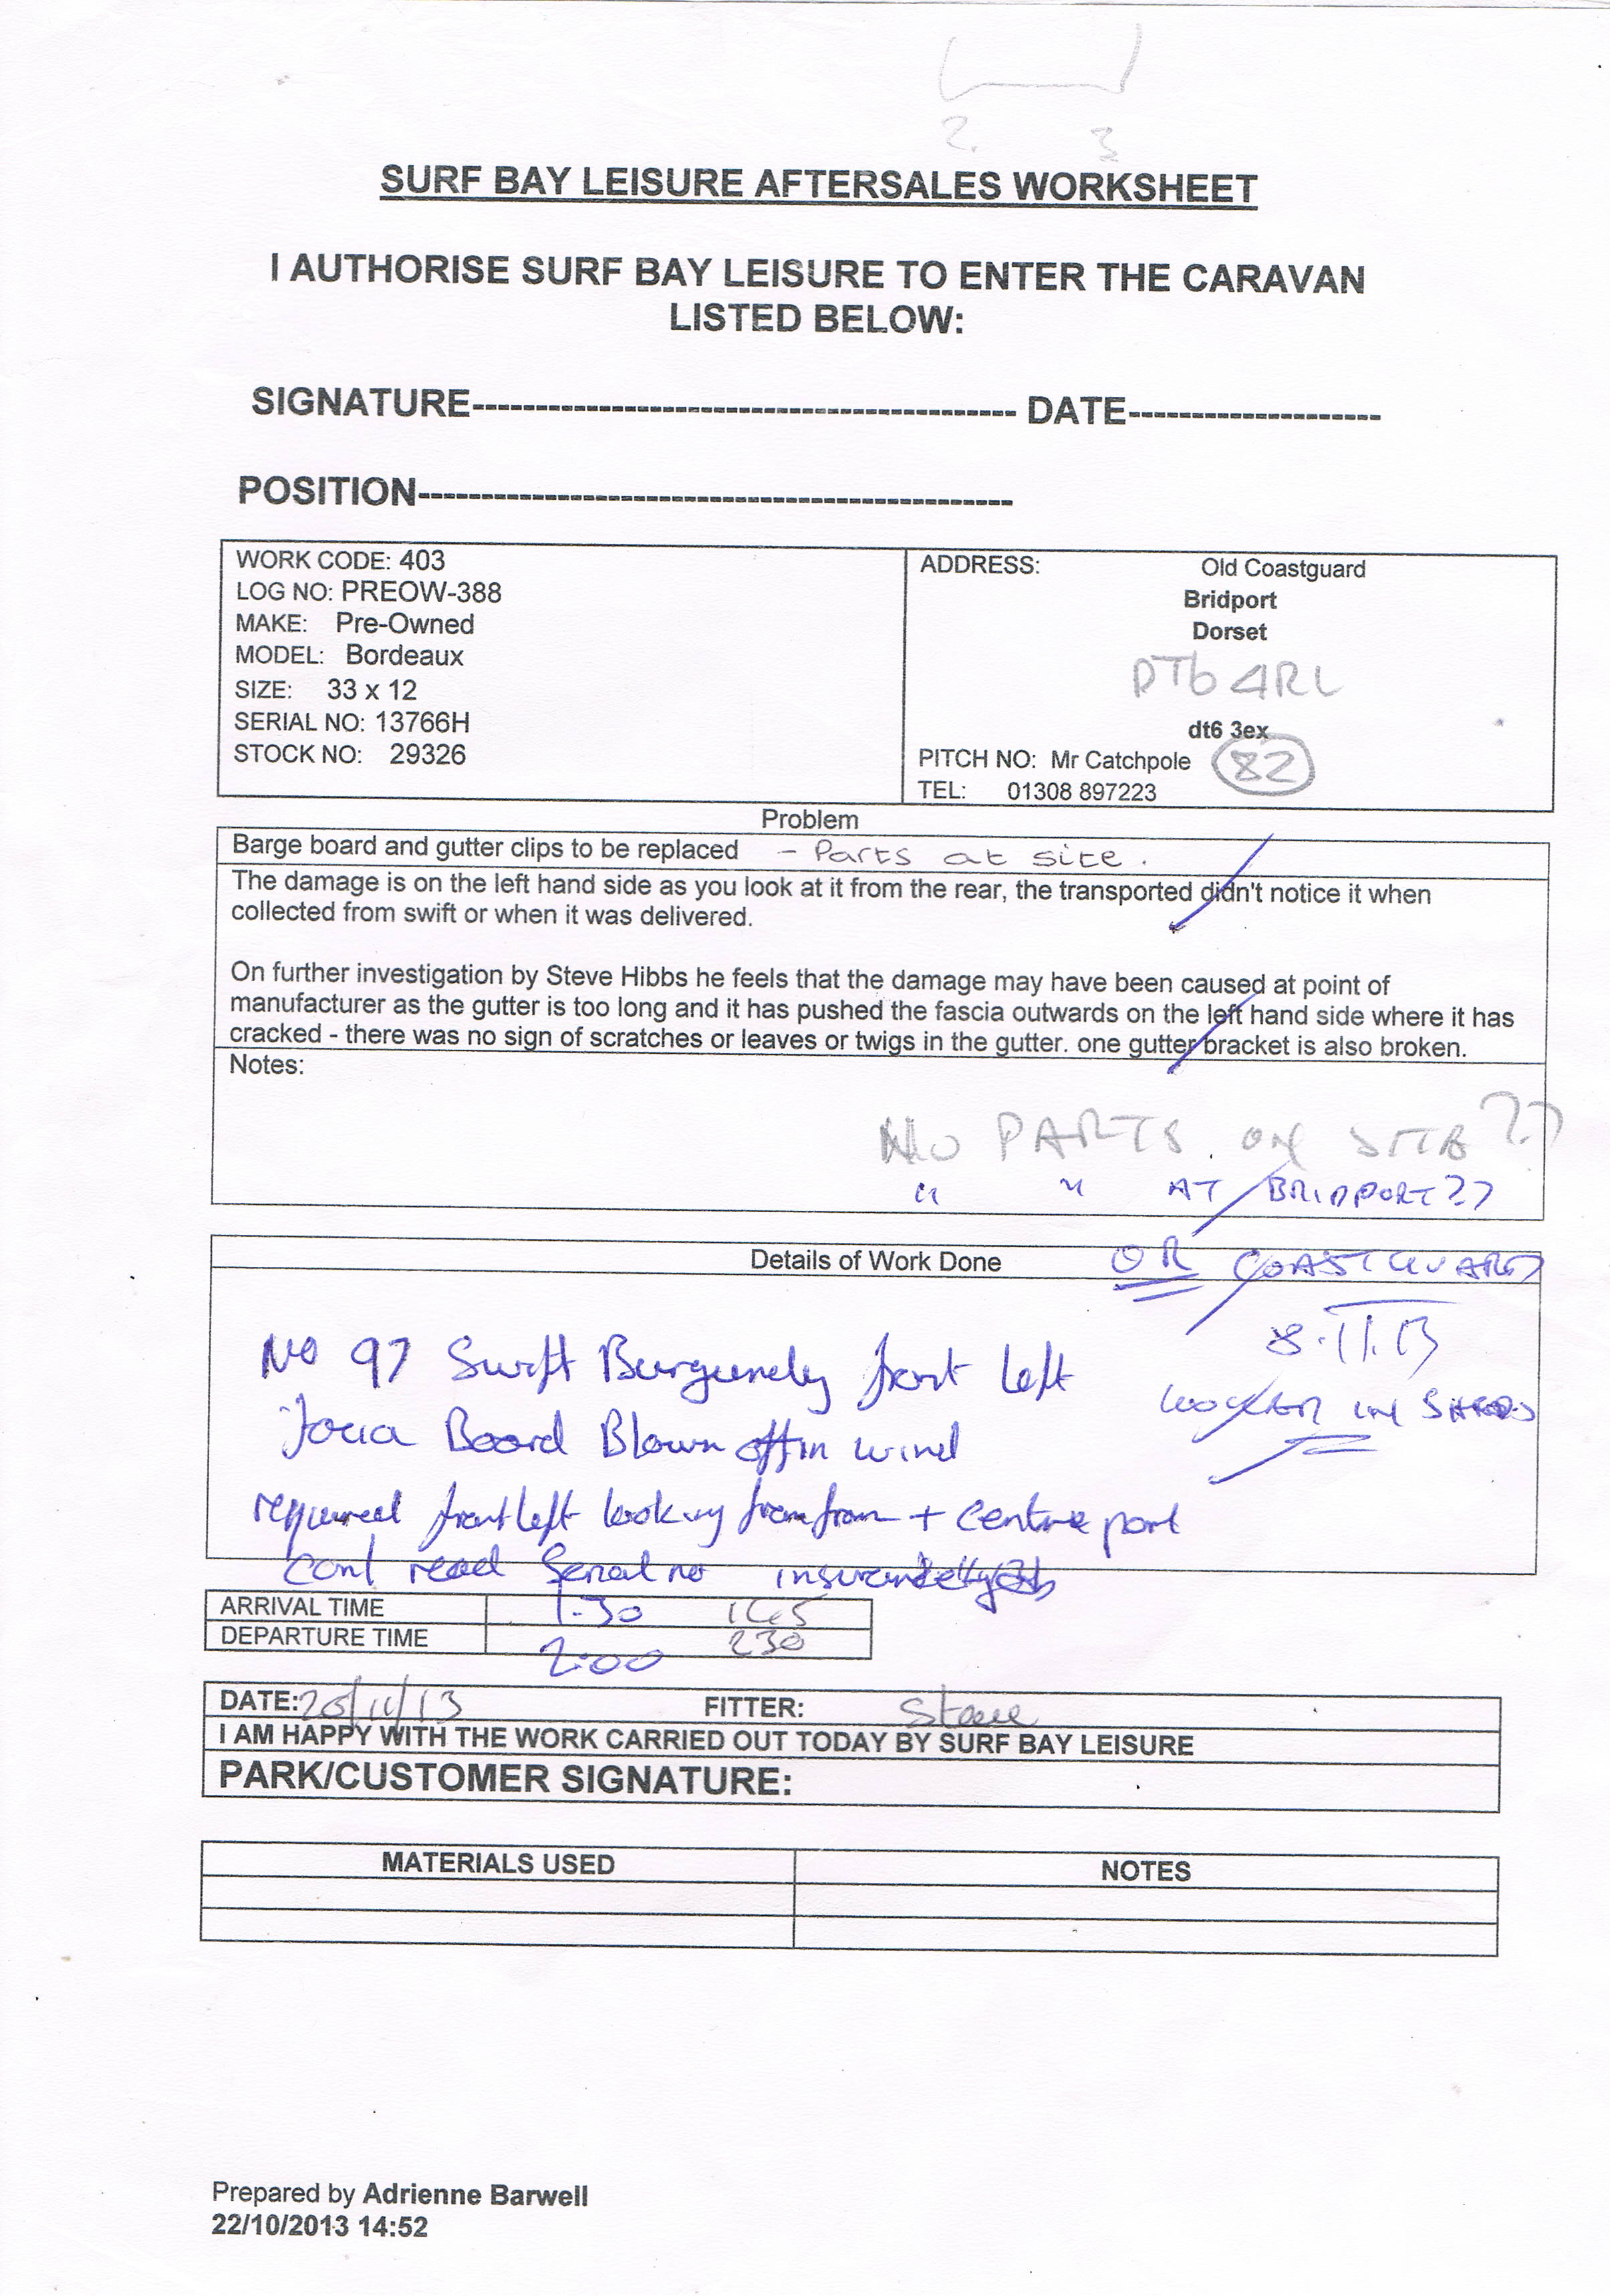 2. 3
SURF BAY LEISURE AFTERSALES WORKSHEET
I AUTHORISE SURF BAY LEISURE TO ENTER THE CARAVAN
LISTED BELOW:
SIGNATURE------------------------------------------- DATE--------------------
POSITION-----------------------------------------------
WORK CODE: 403
LOG NO: PREOW-388
MAKE: Pre-Owned
MODEL: Bordeaux
SIZE: 33 x 12
SERIAL NO: 13766H
STOCK NO: 29326
ADDRESS: Old Coastguard
Bridport
Dorset
DT6 4RL
dt6 3ex
PITCH NO: Mr Catchpole 82
TEL: 01308 897223
Problem
Barge board and gutter clips to be replaced - Parts at site.
The damage is on the left hand side as you look at it from the rear, the transported didn't notice it when
collected from swift or when it was delivered.
On further investigation by Steve Hibbs he feels that the damage may have been caused at point of
manufacturer as the gutter is too long and it has pushed the fascia outwards on the left hand side where it has
cracked - there was no sign of scratches or leaves or twigs in the gutter. one gutter bracket is also broken.
Notes:
NO PARTS ON SITE ??
" " AT BRIDPORT??
Details of Work Done OR COASTGUARD
8.11.13
No 97 Swift Burgundy front left
LOOKED IN SHEDS
Board Blown off in wind
required front left looking from + centre part
cant read Serial no
ARRIVAL TIME 1-30 145
DEPARTURE TIME 2:00 230
DATE: /11/13 FITTER: Steve
I AM HAPPY WITH THE WORK CARRIED OUT TODAY BY SURF BAY LEISURE
PARK/CUSTOMER SIGNATURE:
MATERIALS USED NOTES
Prepared by Adrienne Barwell
22/10/2013 14:52